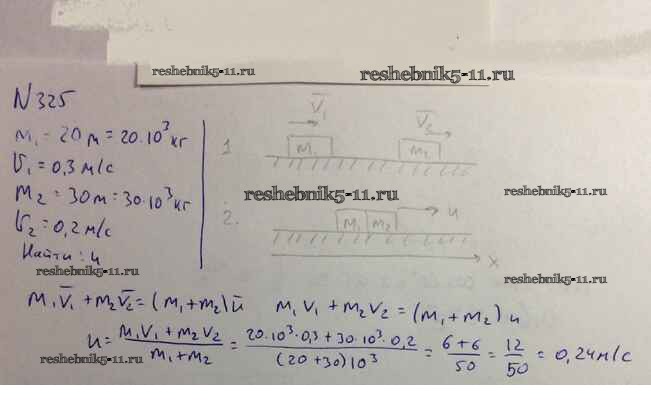 reshebnik5-11.ru reshebnik5-11.ru
N 325
m₁ = 20 т = 20·10³ кг
V₁ = 0,3 м/с
m₂ = 30 т = 30·10³ кг
V₂ = 0,2 м/с
Найти: u
1 V̅₁ m₁ V̅₂ m₂
reshebnik5-11.ru reshebnik5-11.ru
2. m₁ m₂ u
x
reshebnik5-11.ru reshebnik5-11.ru
m₁V̅₁ + m₂V̅₂ = (m₁+m₂)u̅ m₁V₁ + m₂V₂ = (m₁+m₂)u
u = (m₁V₁ + m₂V₂)/(m₁+m₂) = (20·10³·0,3 + 30·10³·0,2)/((20+30)10³) = (6+6)/50 = 12/50 = 0,24 м/с
reshebnik5-11.ru reshebnik5-11.ru